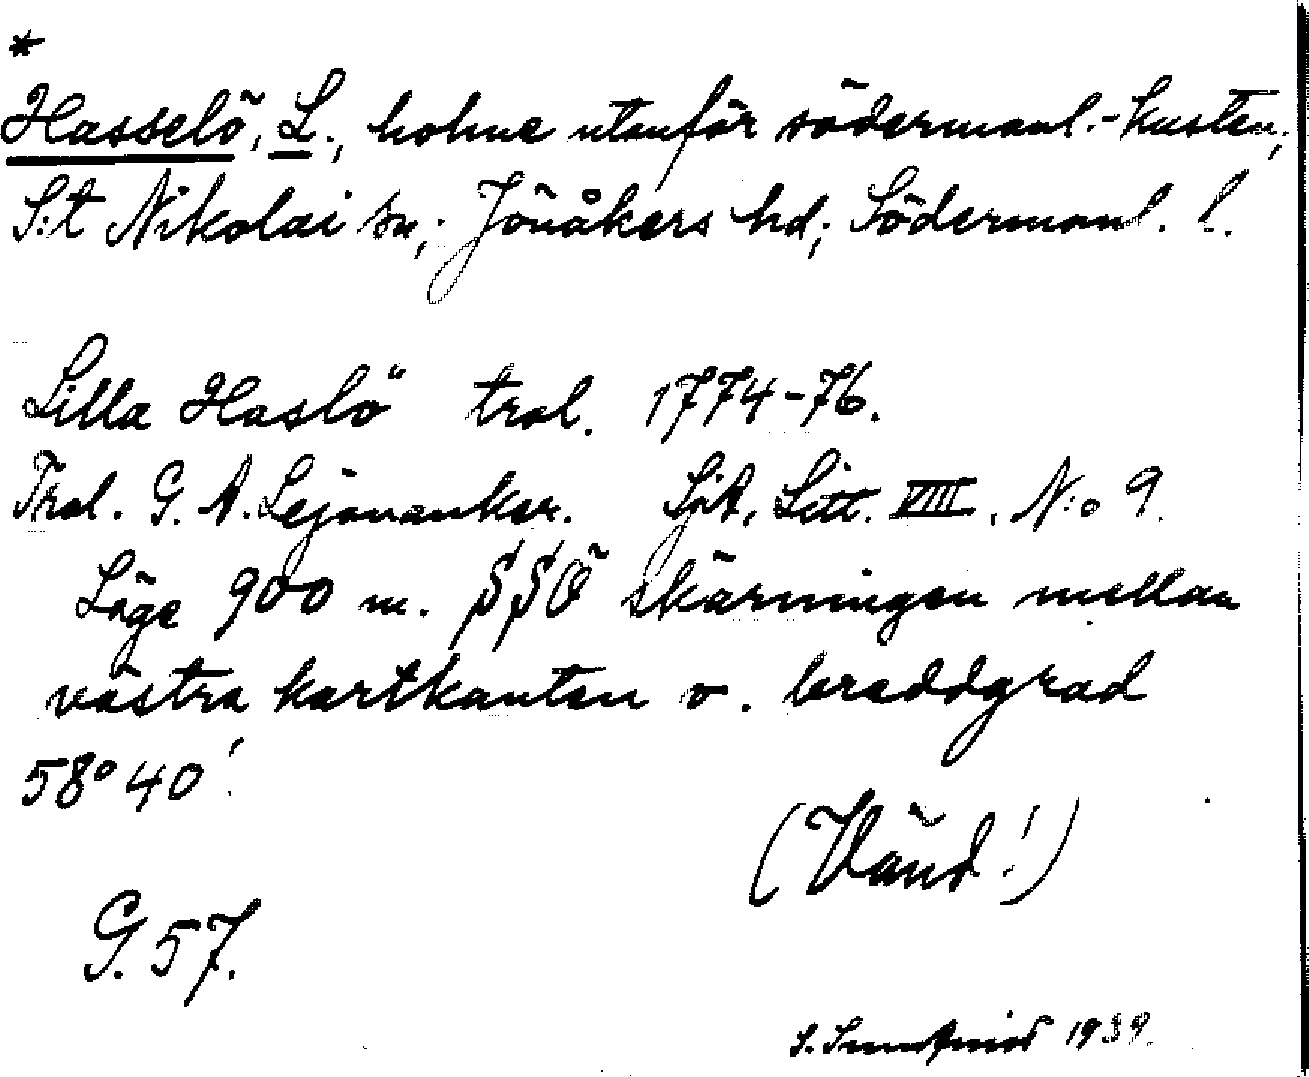 *
Hasselö, L., holme utanför södermanl.-kusten,
S:t Nikolai sn, Jönåkers hd, Södermanl. l.
Lilla Haslö trol. 1774-76.
Trol. G. A. Lejonanker. SjA, Litt. VIIII, N:o 9.
Läge 900 m. SSÖ skärningen mellan
västra kartkanten o. breddgrad
58° 40'.
(Vänd!)
G. 57.
1939.